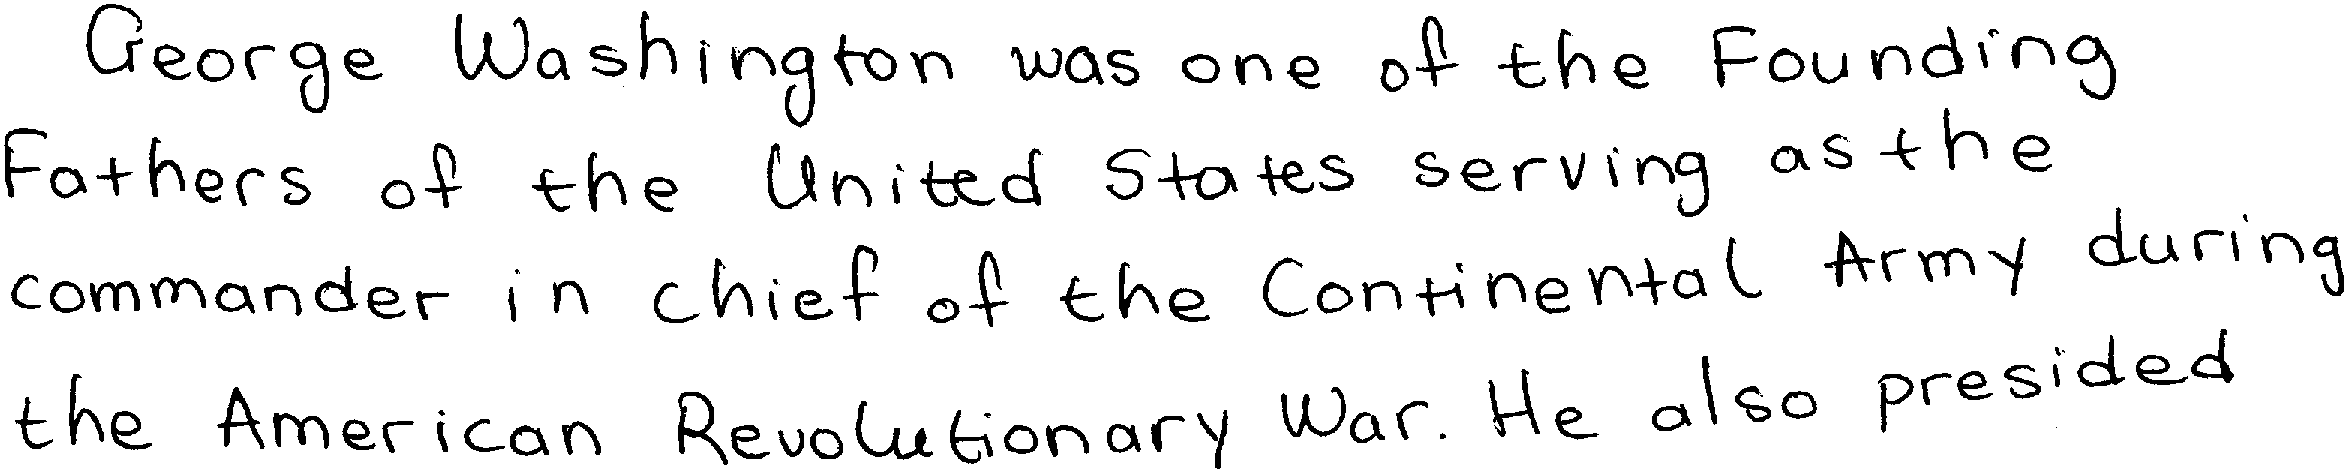 George Washington was one of the Founding
Fathers of the United States serving as the
commander in chief of the Continental Army during
the American Revolutionary War. He also presided